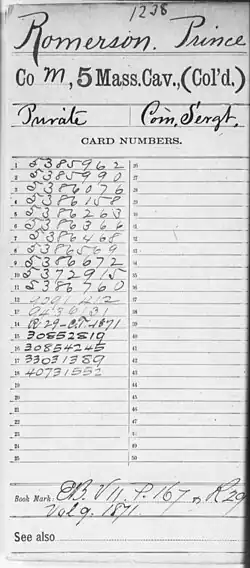 1238
Romerson. Prince
Co M, 5 Mass. Cav., (Col'd.)
Private Com, Sergt,
CARD NUMBERS.
1 5385962 26
2 5385990 27
3 5386076 28
4 5386158 29
5 5386263 30
6 5386366 31
7 5386468 32
8 5386569 33
9 5386672 34
10 5372915 35
11 5386760 36
12 37
13 38
14 39
15 30852819 40
16 30854245 41
17 33031389 42
18 40731552 43
19 44
20 45
21 46
22 47
23 48
24 49
25 50
Book Mark: P. 167, R 29
Vol 9. 1871
See also